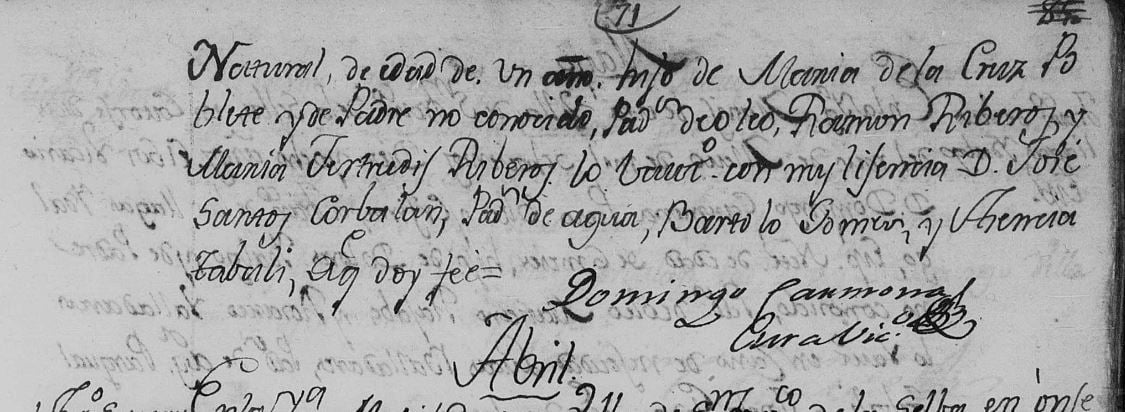 71
Natural, de edad de un año. hijo de Maria de la Cruz Po
blete y de Padre no conocido, Padns de oleo, Ramon Riberos y
Maria Jertrudis Riberos lo baut.o con my lisencia D. José
Santos Corbalan, Padns de agua, Bartolo Gomes, y
Aq doy fee=
Domingo Carmona
Cura Vic.o
Abril.
en onse